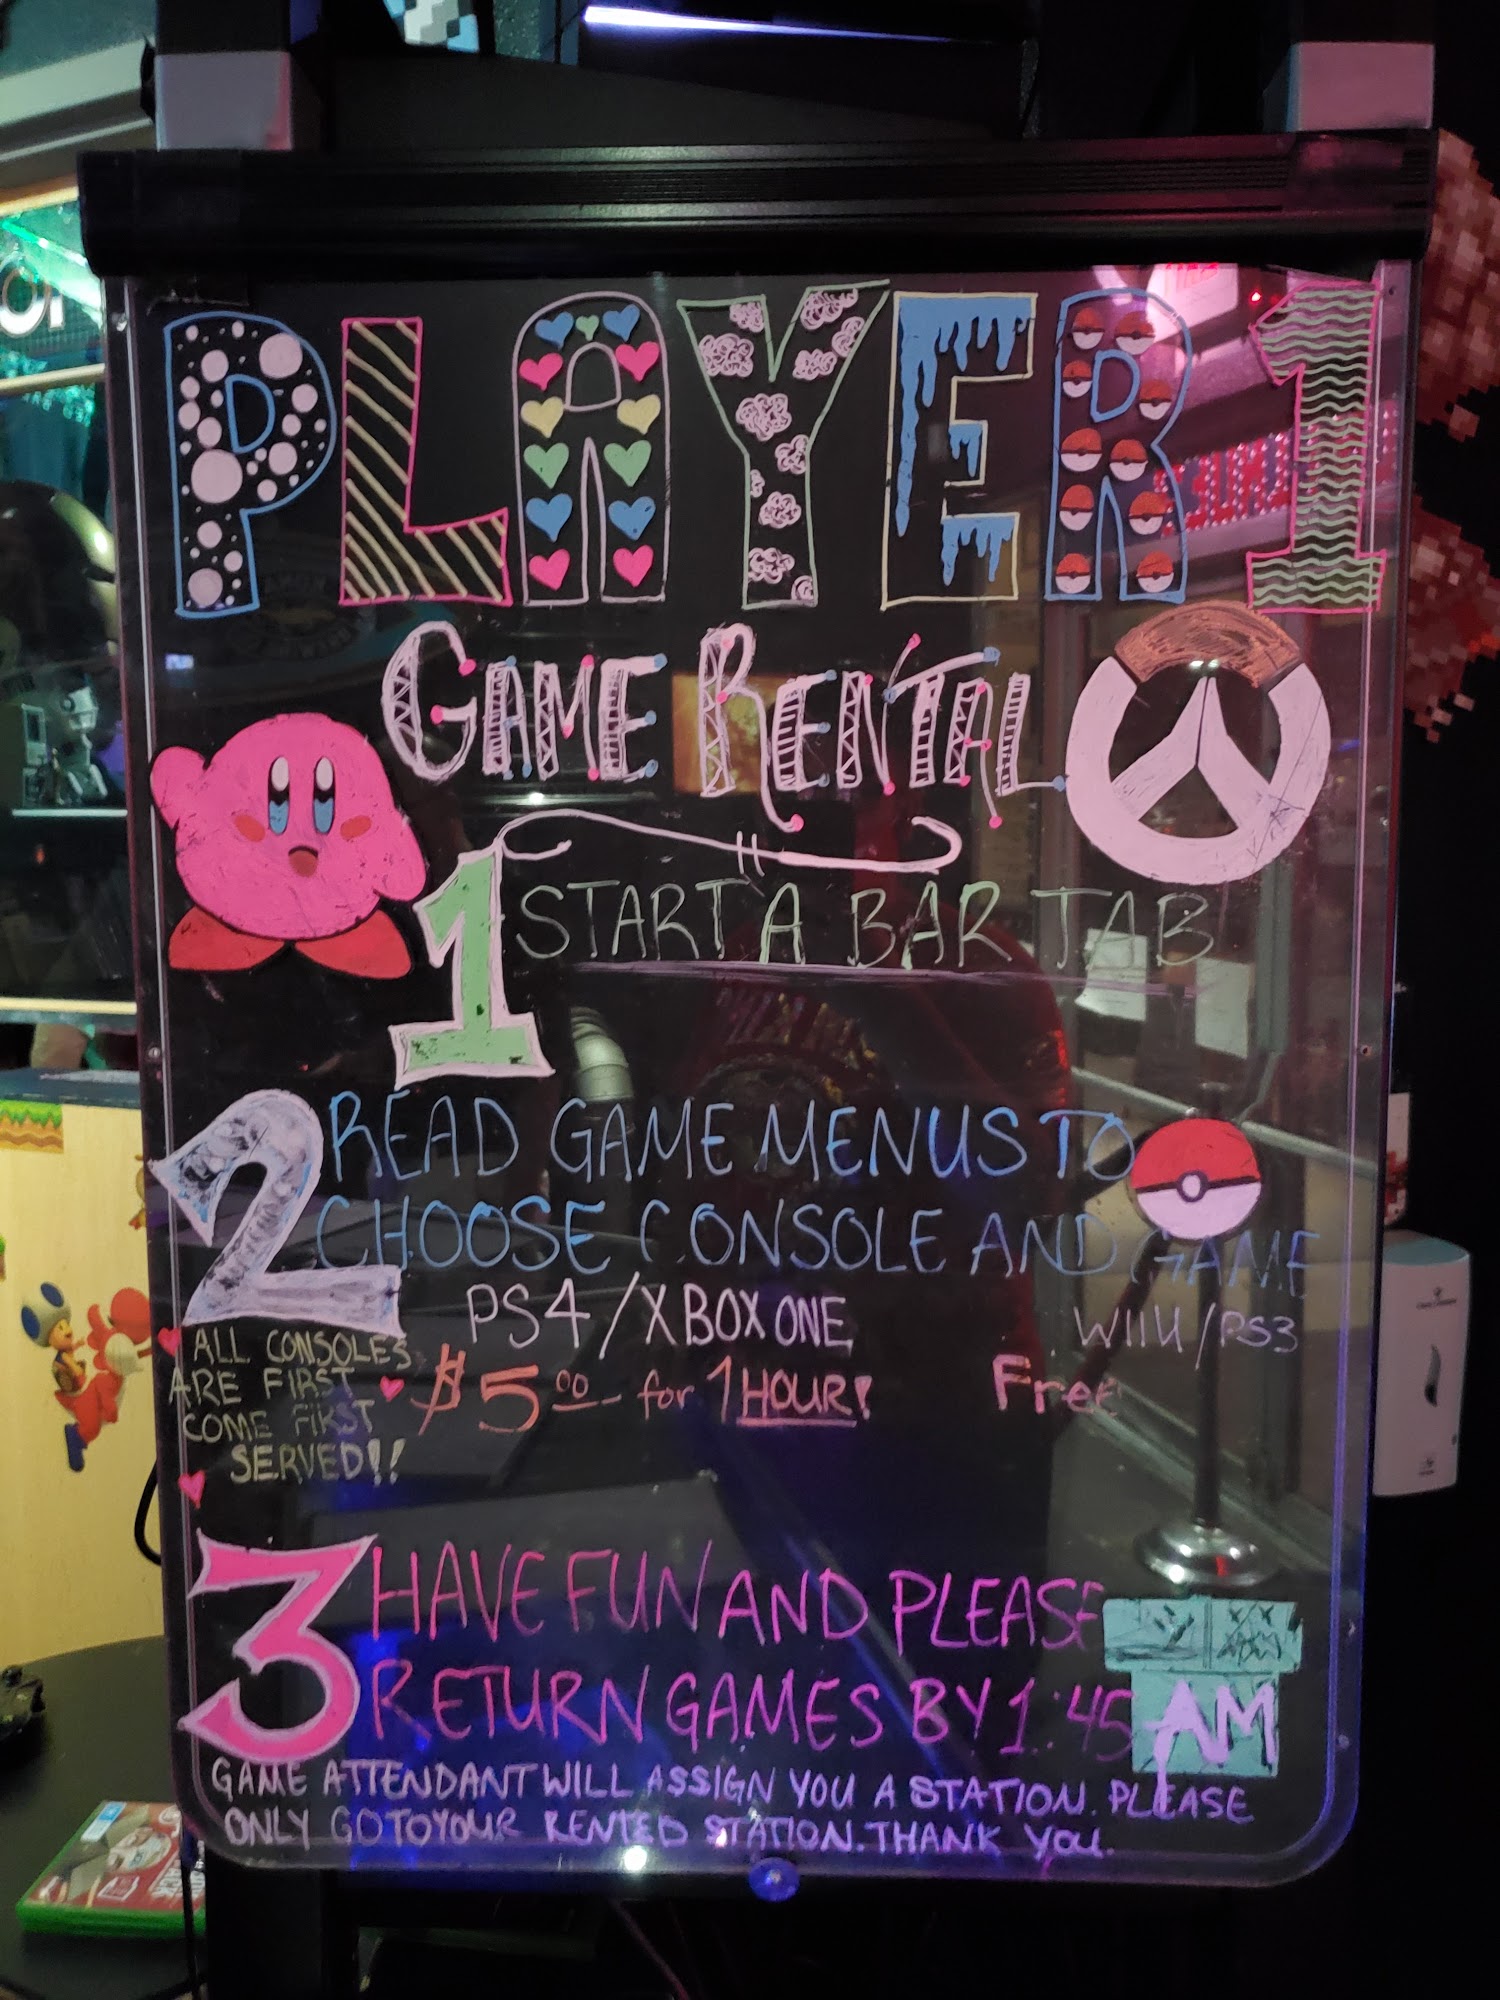 PLAYER 1
GAME RENTAL
1 START A BAR TAB
2 READ GAME MENUS TO
CHOOSE CONSOLE AND GAME
PS4/XBOX ONE
$5.00 for 1 HOUR!
WIIU/PS3
Free
ALL CONSOLES
ARE FIRST
COME FIRST
SERVED!!
3 HAVE FUN AND PLEASE
RETURN GAMES BY 1:45 AM
GAME ATTENDANT WILL ASSIGN YOU A STATION. PLEASE
ONLY GO TO YOUR RENTED STATION. THANK YOU.